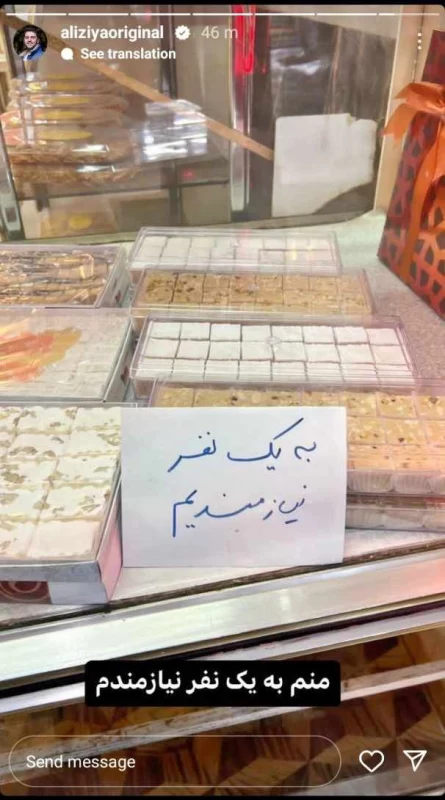 aliziyaoriginal 46 m
See translation
به یک نفر
نیازمندیم
منم به یک نفر نیازمندم
Send message